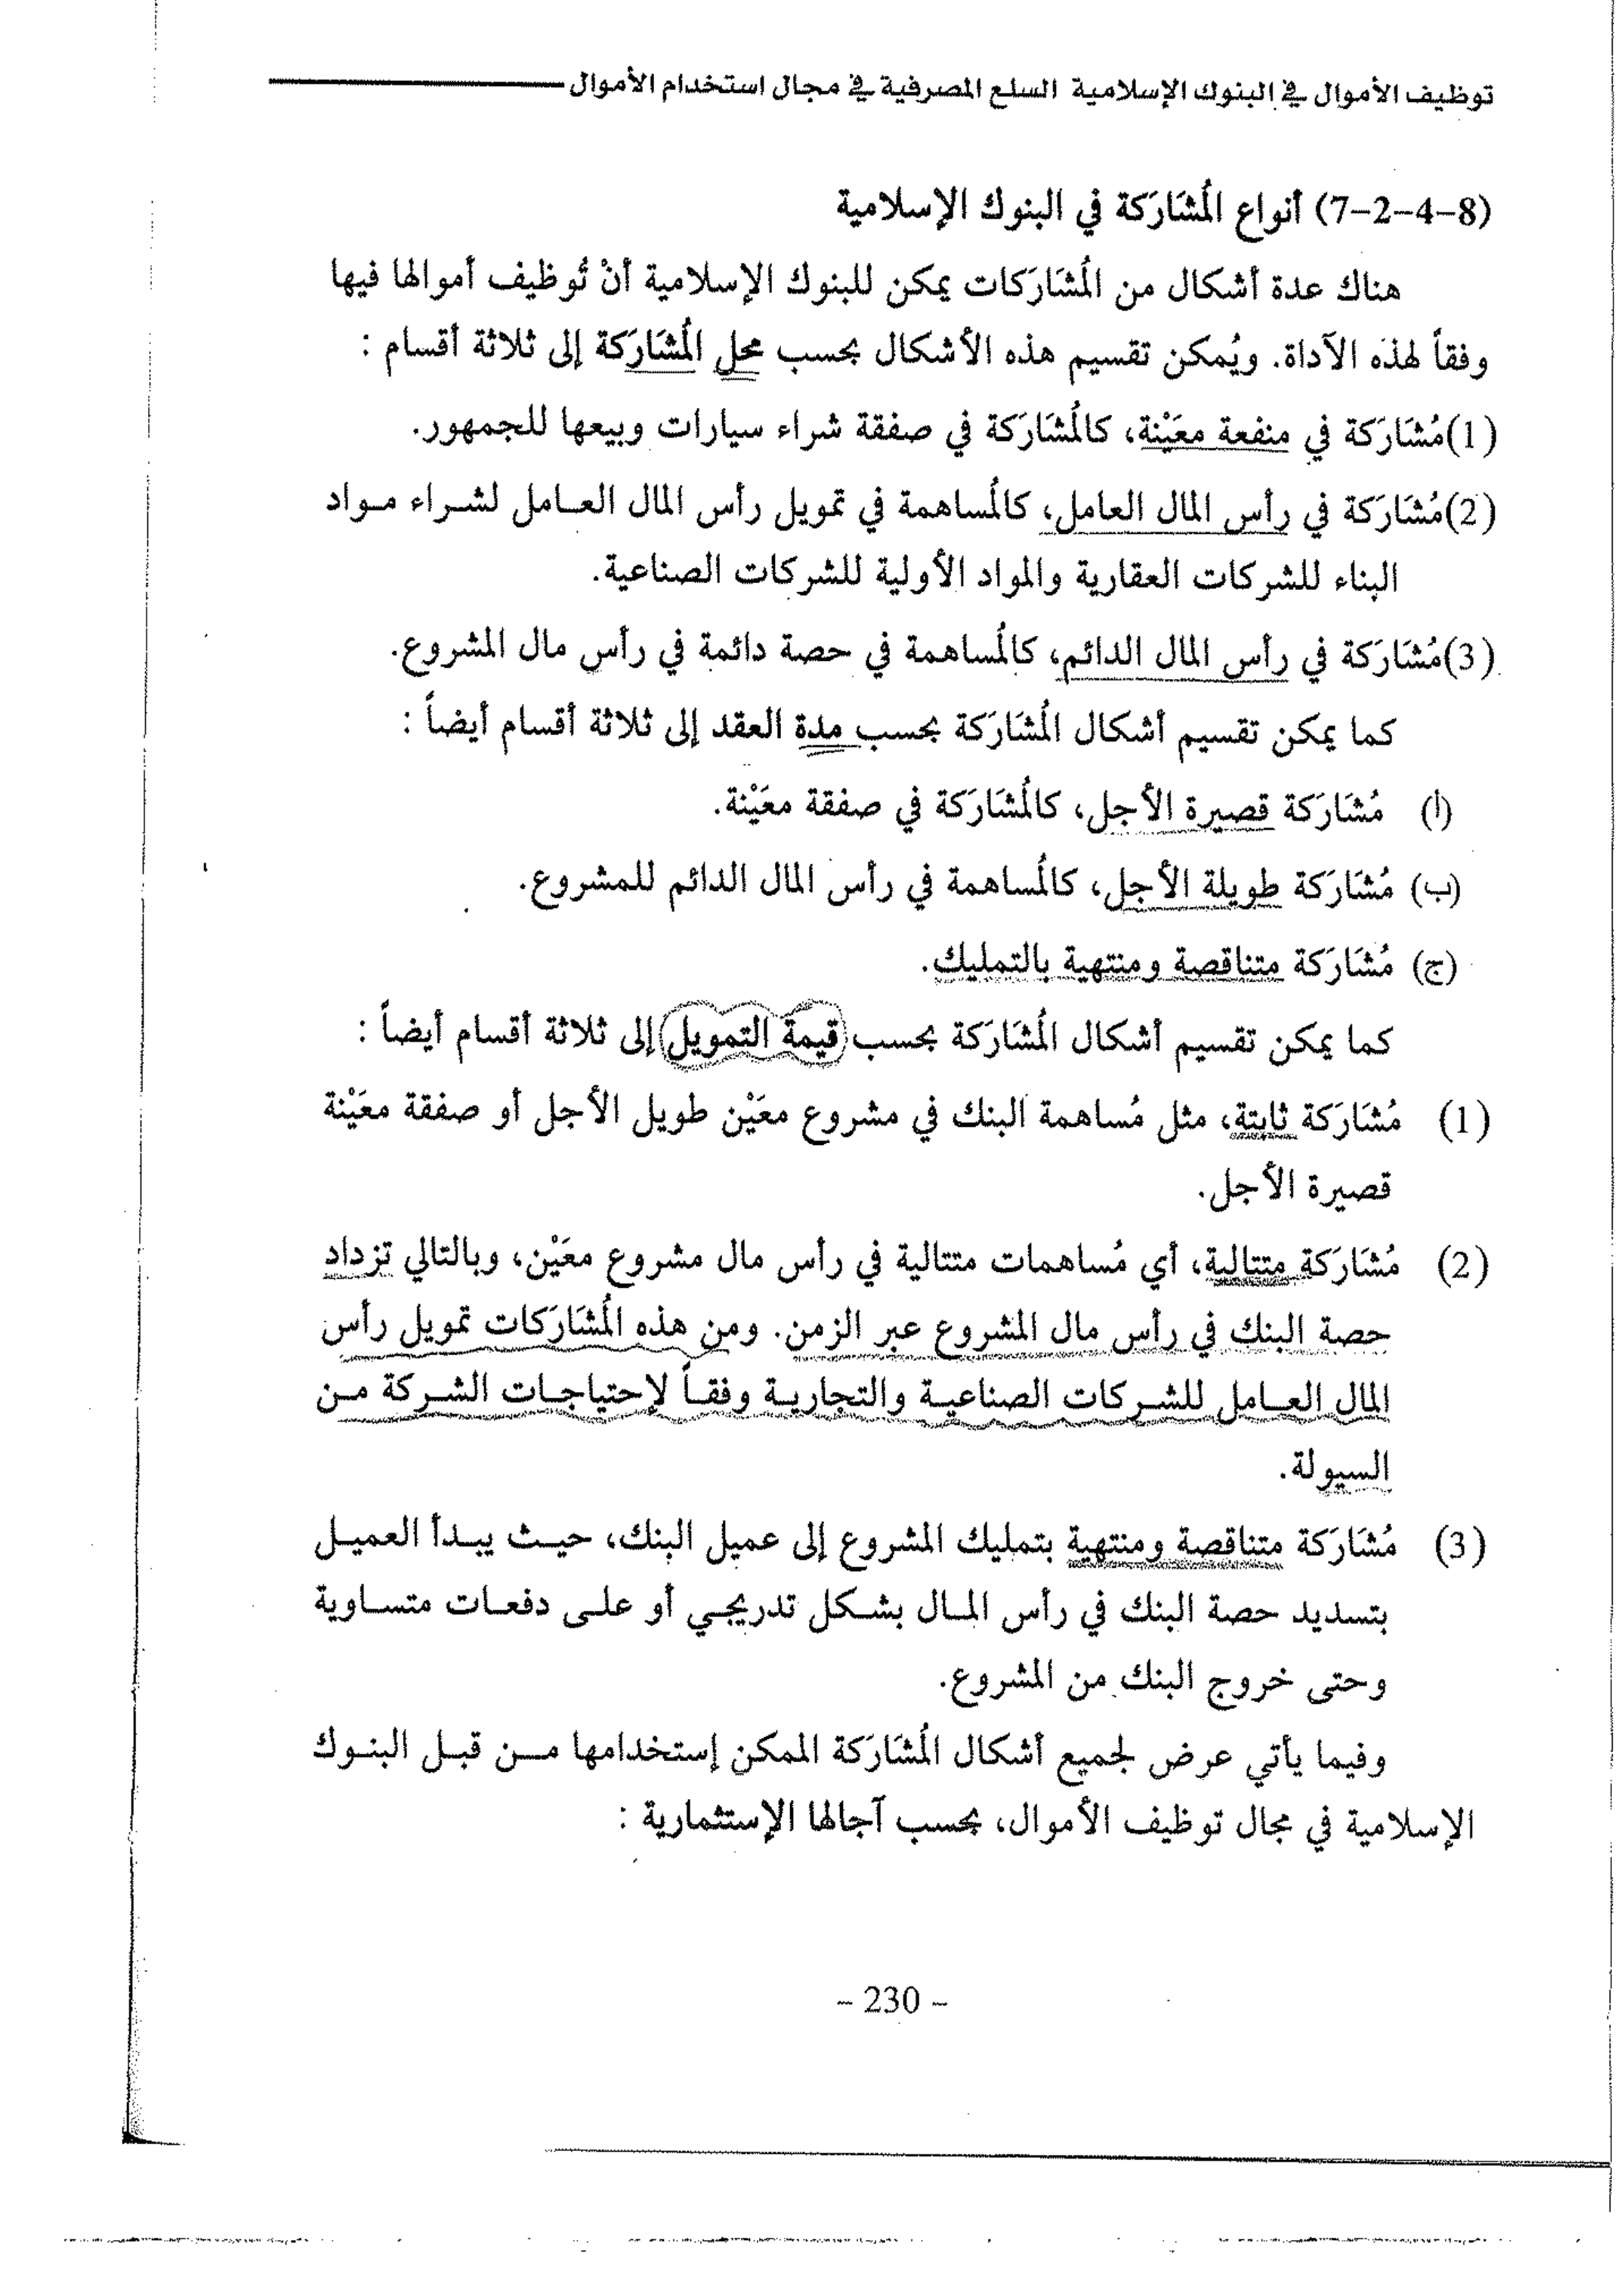 توظيف الأموال في البنوك الإسلامية السلع المصرفية في مجال استخدام الأموال
(7-2-4-8) أنواع المُشَارَكة في البنوك الإسلامية
هناك عدة أشكال من المُشَارَكات يمكن للبنوك الإسلامية أنْ تُوظيف أموالها فيها
وفقاً لهذه الآداة. ويُمكن تقسيم هذه الأشكال بحسب محل المُشَارَكة إلى ثلاثة أقسام :
(1)مُشَارَكة في منفعة معَيْنة، كالمُشَارَكة في صفقة شراء سيارات وبيعها للجمهور.
(2)مُشَارَكة في رأس المال العامل، كالمُساهمة في تمويل رأس المال العـامل لشـراء مـواد
البناء للشركات العقارية والمواد الأولية للشركات الصناعية.
(3)مُشَارَكة في رأس المال الدائم، كالمُساهمة في حصة دائمة في رأس مال المشروع.
كما يمكن تقسيم أشكال المُشَارَكة بحسب مدة العقد إلى ثلاثة أقسام أيضاً :
(أ) مُشَارَكة قصيرة الأجل، كالمُشَارَكة في صفقة معَيْنة.
(ب) مُشَارَكة طويلة الأجل، كالمُساهمة في رأس المال الدائم للمشروع.
(ج) مُشَارَكة متناقصة ومنتهية بالتمليك.
كما يمكن تقسيم أشكال المُشَارَكة بحسب قيمة التمويل إلى ثلاثة أقسام أيضاً :
(1) مُشَارَكة ثابتة، مثل مُساهمة البنك في مشروع معَيْن طويل الأجل أو صفقة معَيْنة
قصيرة الأجل.
(2) مُشَارَكة متتالية، أي مُساهمات متتالية في رأس مال مشروع معَيْن، وبالتالي تزداد
حصة البنك في رأس مال المشروع عبر الزمن. ومن هذه المُشَارَكات تمويل رأس
المال العـامل للشـركات الصناعيـة والتجاريـة وفقـاً لإحتياجـات الشـركة مـن
السيولة.
(3) مُشَارَكة متناقصة ومنتهية بتمليك المشروع إلى عميل البنك، حيـث يبـدأ العميـل
بتسديد حصة البنك في رأس المـال بشـكل تدريجـي أو علـى دفعـات متسـاوية
وحتى خروج البنك من المشروع.
وفيما يأتي عرض لجميع أشكال المُشَارَكة الممكن إستخدامها مـن قبـل البنـوك
الإسلامية في مجال توظيف الأموال، بحسب آجالها الإستثمارية :
- 230 -